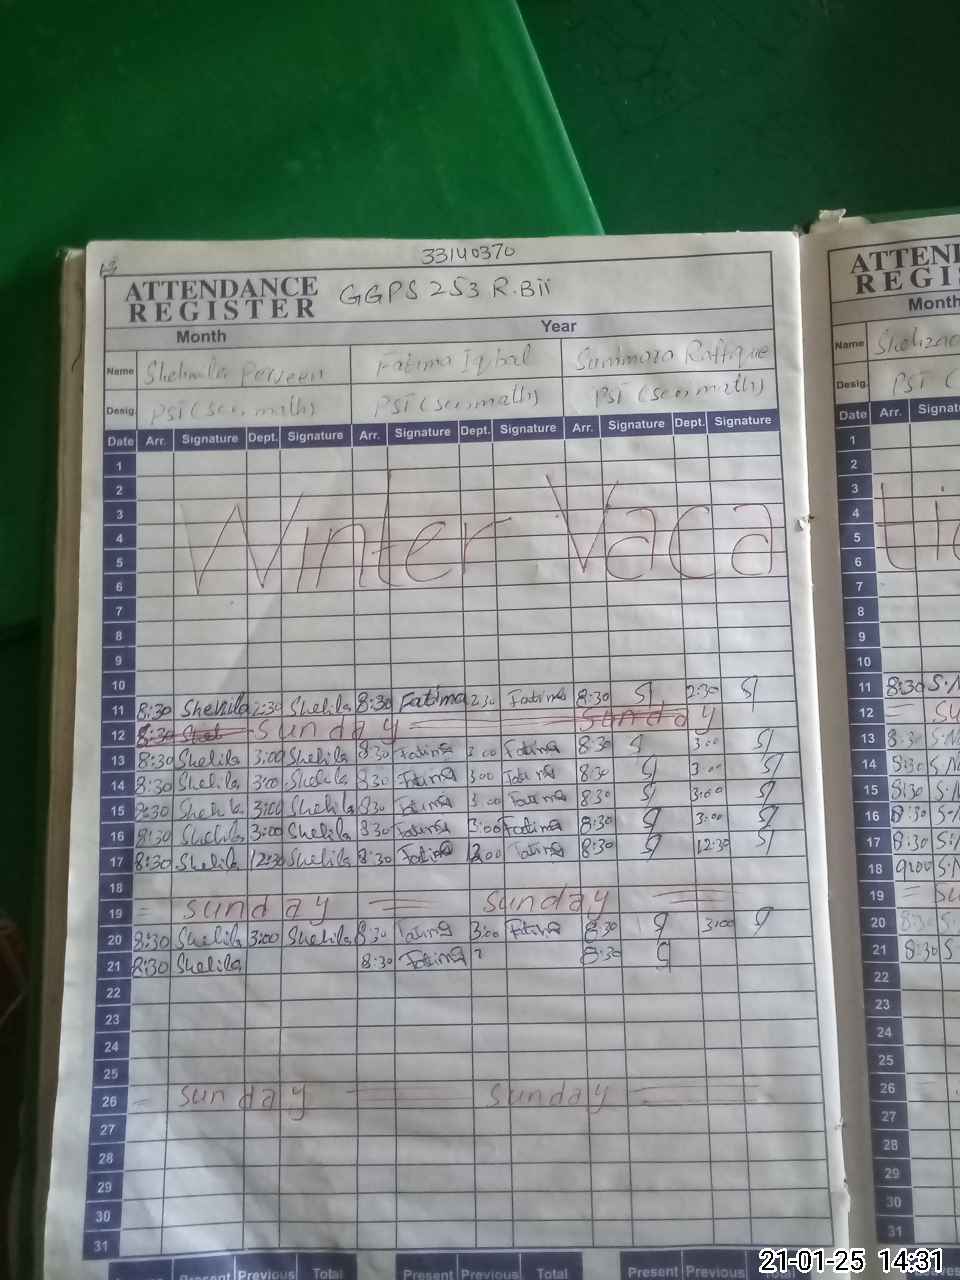 33140370
ATTENDANCE REGISTER GGPS 253 R.Bii
Month Year
Name Shehnila Perveen Fatima Iqbal Summara Raffique
Desig. PST (sci, math) PST (sci, math) PST (sci, math)
Date Arr. Signature Dept. Signature Arr. Signature Dept. Signature Arr. Signature Dept. Signature
1
2
3
4
5
6
Winter Vaca
7
8
9
10
11 8:30 Shehila 2:30 Shehila 8:30 Fatima 2:30 Fatima 8:30 2:30
12 8:30 Sunday Sunday
13 8:30 Shehila 3:00 Shehila 8:30 Fatima 3:00 Fatima 8:30 3:00
14 8:30 Shehila 3:00 Shehila 8:30 Fatima 3:00 Fatima 8:30 3:00
15 8:30 Shehila 3:00 Shehila 8:30 Fatima 3:00 Fatima 8:30 3:00
16 8:30 Shehila 3:00 Shehila 8:30 Fatima 3:00 Fatima 8:30 3:00
17 8:30 Shehila 12:30 Shehila 8:30 Fatima Fatima 8:30 12:30
18
19 sunday sunday
20 8:30 Shehila 3:00 Shehila 8:30 Fatima 3:00 Fatima 8:30 3:00
21 8:30 Shehila 8:30 Fatima 8:30
22
23
24
25
26 sunday sunday
27
28
29
30
31
Present Previous Total Present Previous Total Present Previous
ATTEN
REGIS
Month
Name
Desig. PST (
Date Arr. Signat
1
2
3
4
5
6
ti
7
8
9
10
11 8:30 S.N
12 su
13 8:30 S.N
14 8:30 S.N
15 8:30 S.N
16 8:30 S.N
17 8:30 S.N
18 9:00 S.N
19 su
20 8:30 S
21 8:30 S
22
23
24
25
26
27
28
29
30
31
21-01-25 14:31